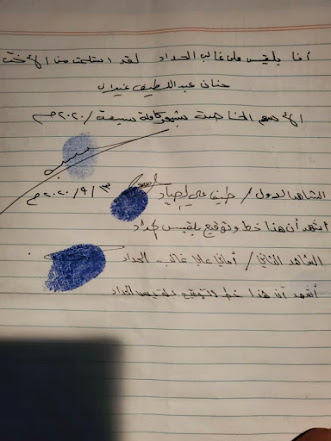 أنا بلقيس علي غالب الحداد لقد استلمت من الأخت
حنان عبد اللطيف
الأسهم الخاصة بشهر سبعة /٢٠٢٠م
الشاهد الأول / علي الحداد ٣/٩/٢٠٢٠م
أشهد أن هذا خط وتوقيع بلقيس الحداد
الشاهد الثاني / أماني غالب الحداد
أشهد أن هذا خط وتوقيع بلقيس الحداد